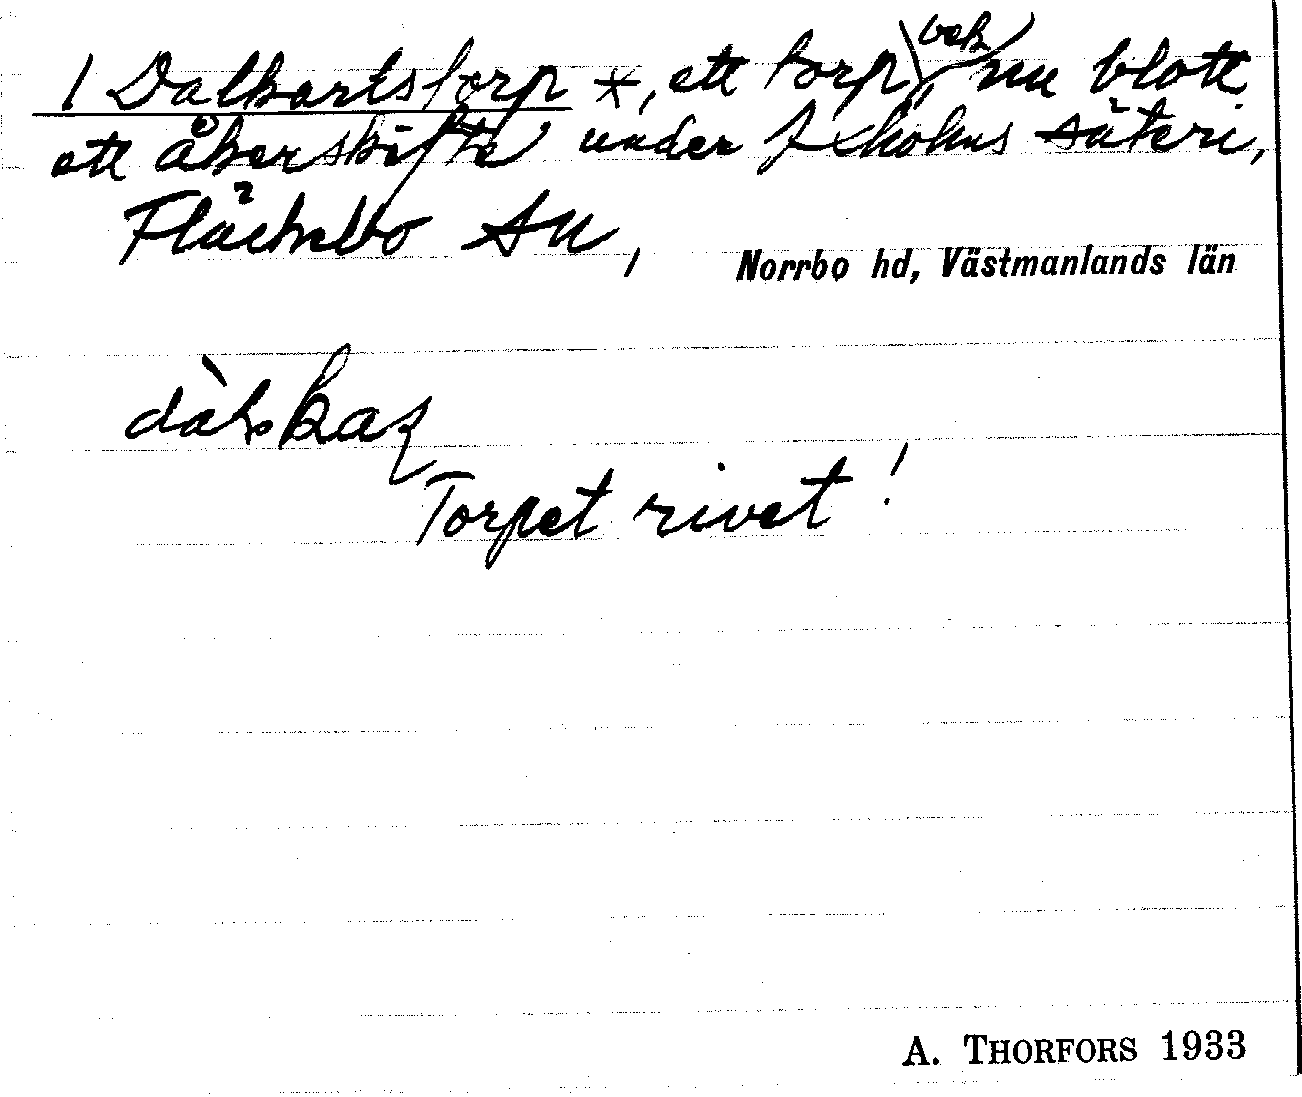 1 Dalkarlstorp *, ett torp, bek nu blott
ett åkerskifte under säteri,
Fläckebo sn,
Norrbo hd, Västmanlands län
Torpet rivet!
A. THORFORS 1933